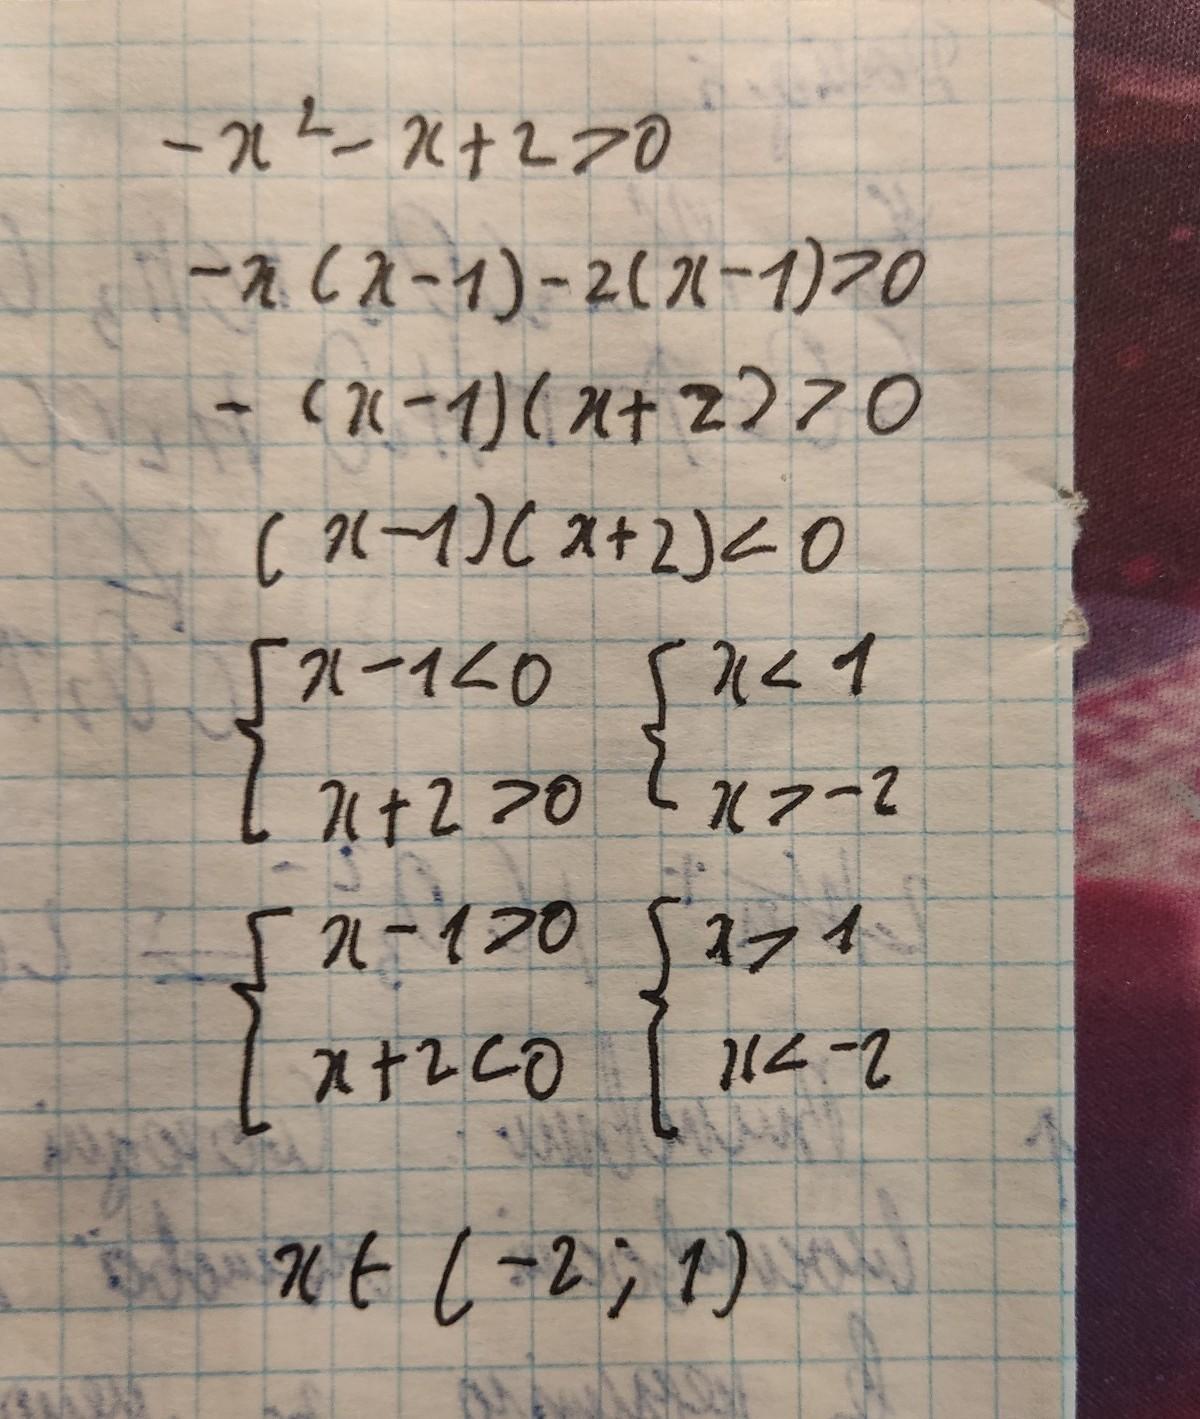 -x² - x + 2 > 0
-x (x - 1) - 2(x - 1) > 0
- (x - 1)(x + 2) > 0
(x - 1)(x + 2) < 0
{ x - 1 < 0 { x < 1
x + 2 > 0 x > -2
{ x - 1 > 0 { x > 1
x + 2 < 0 x < -2
x ∈ (-2 ; 1)